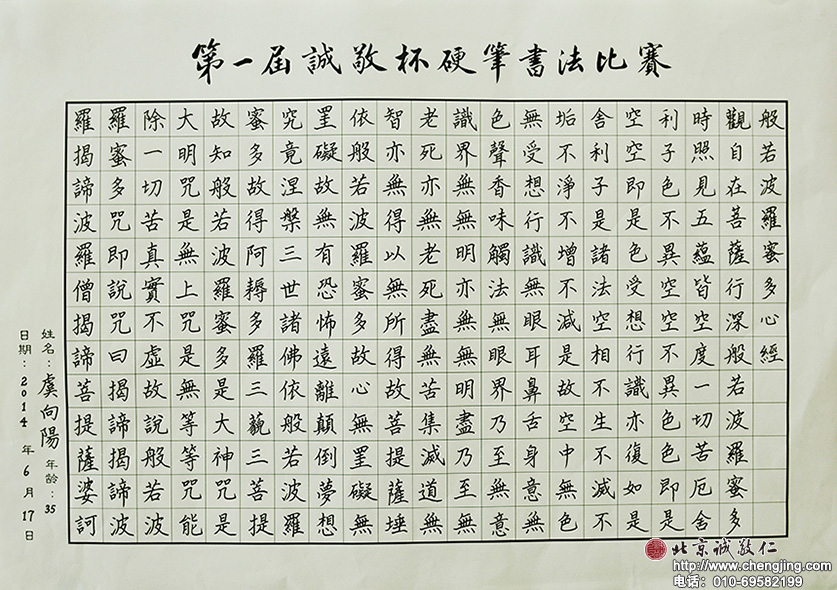 第一屆誠敬杯硬筆書法比賽
般若波羅蜜多心經
觀自在菩薩行深般若波羅蜜多
時照見五蘊皆空度一切苦厄舍
利子色不異空空不異色色即是
空空即是色受想行識亦復如是
舍利子是諸法空相不生不滅不
垢不淨不增不減是故空中無色
無受想行識無眼耳鼻舌身意無
色聲香味觸法無眼界乃至無意
識界無無明亦無無明盡乃至無
老死亦無老死盡無苦集滅道無
智亦無得以無所得故菩提薩埵
依般若波羅蜜多故心無罣礙無
罣礙故無有恐怖遠離顛倒夢想
究竟涅槃三世諸佛依般若波羅
蜜多故得阿耨多羅三藐三菩提
故知般若波羅蜜多是大神咒是
大明咒是無上咒是無等等咒能
除一切苦真實不虛故說般若波
羅蜜多咒即說咒曰揭諦揭諦波
羅揭諦波羅僧揭諦菩提薩婆訶
姓名：虞向陽 年齡：35
日期：2014 年 6 月 17 日
北京誠敬仁
http://www.chengjing.com
电话：010-69582199